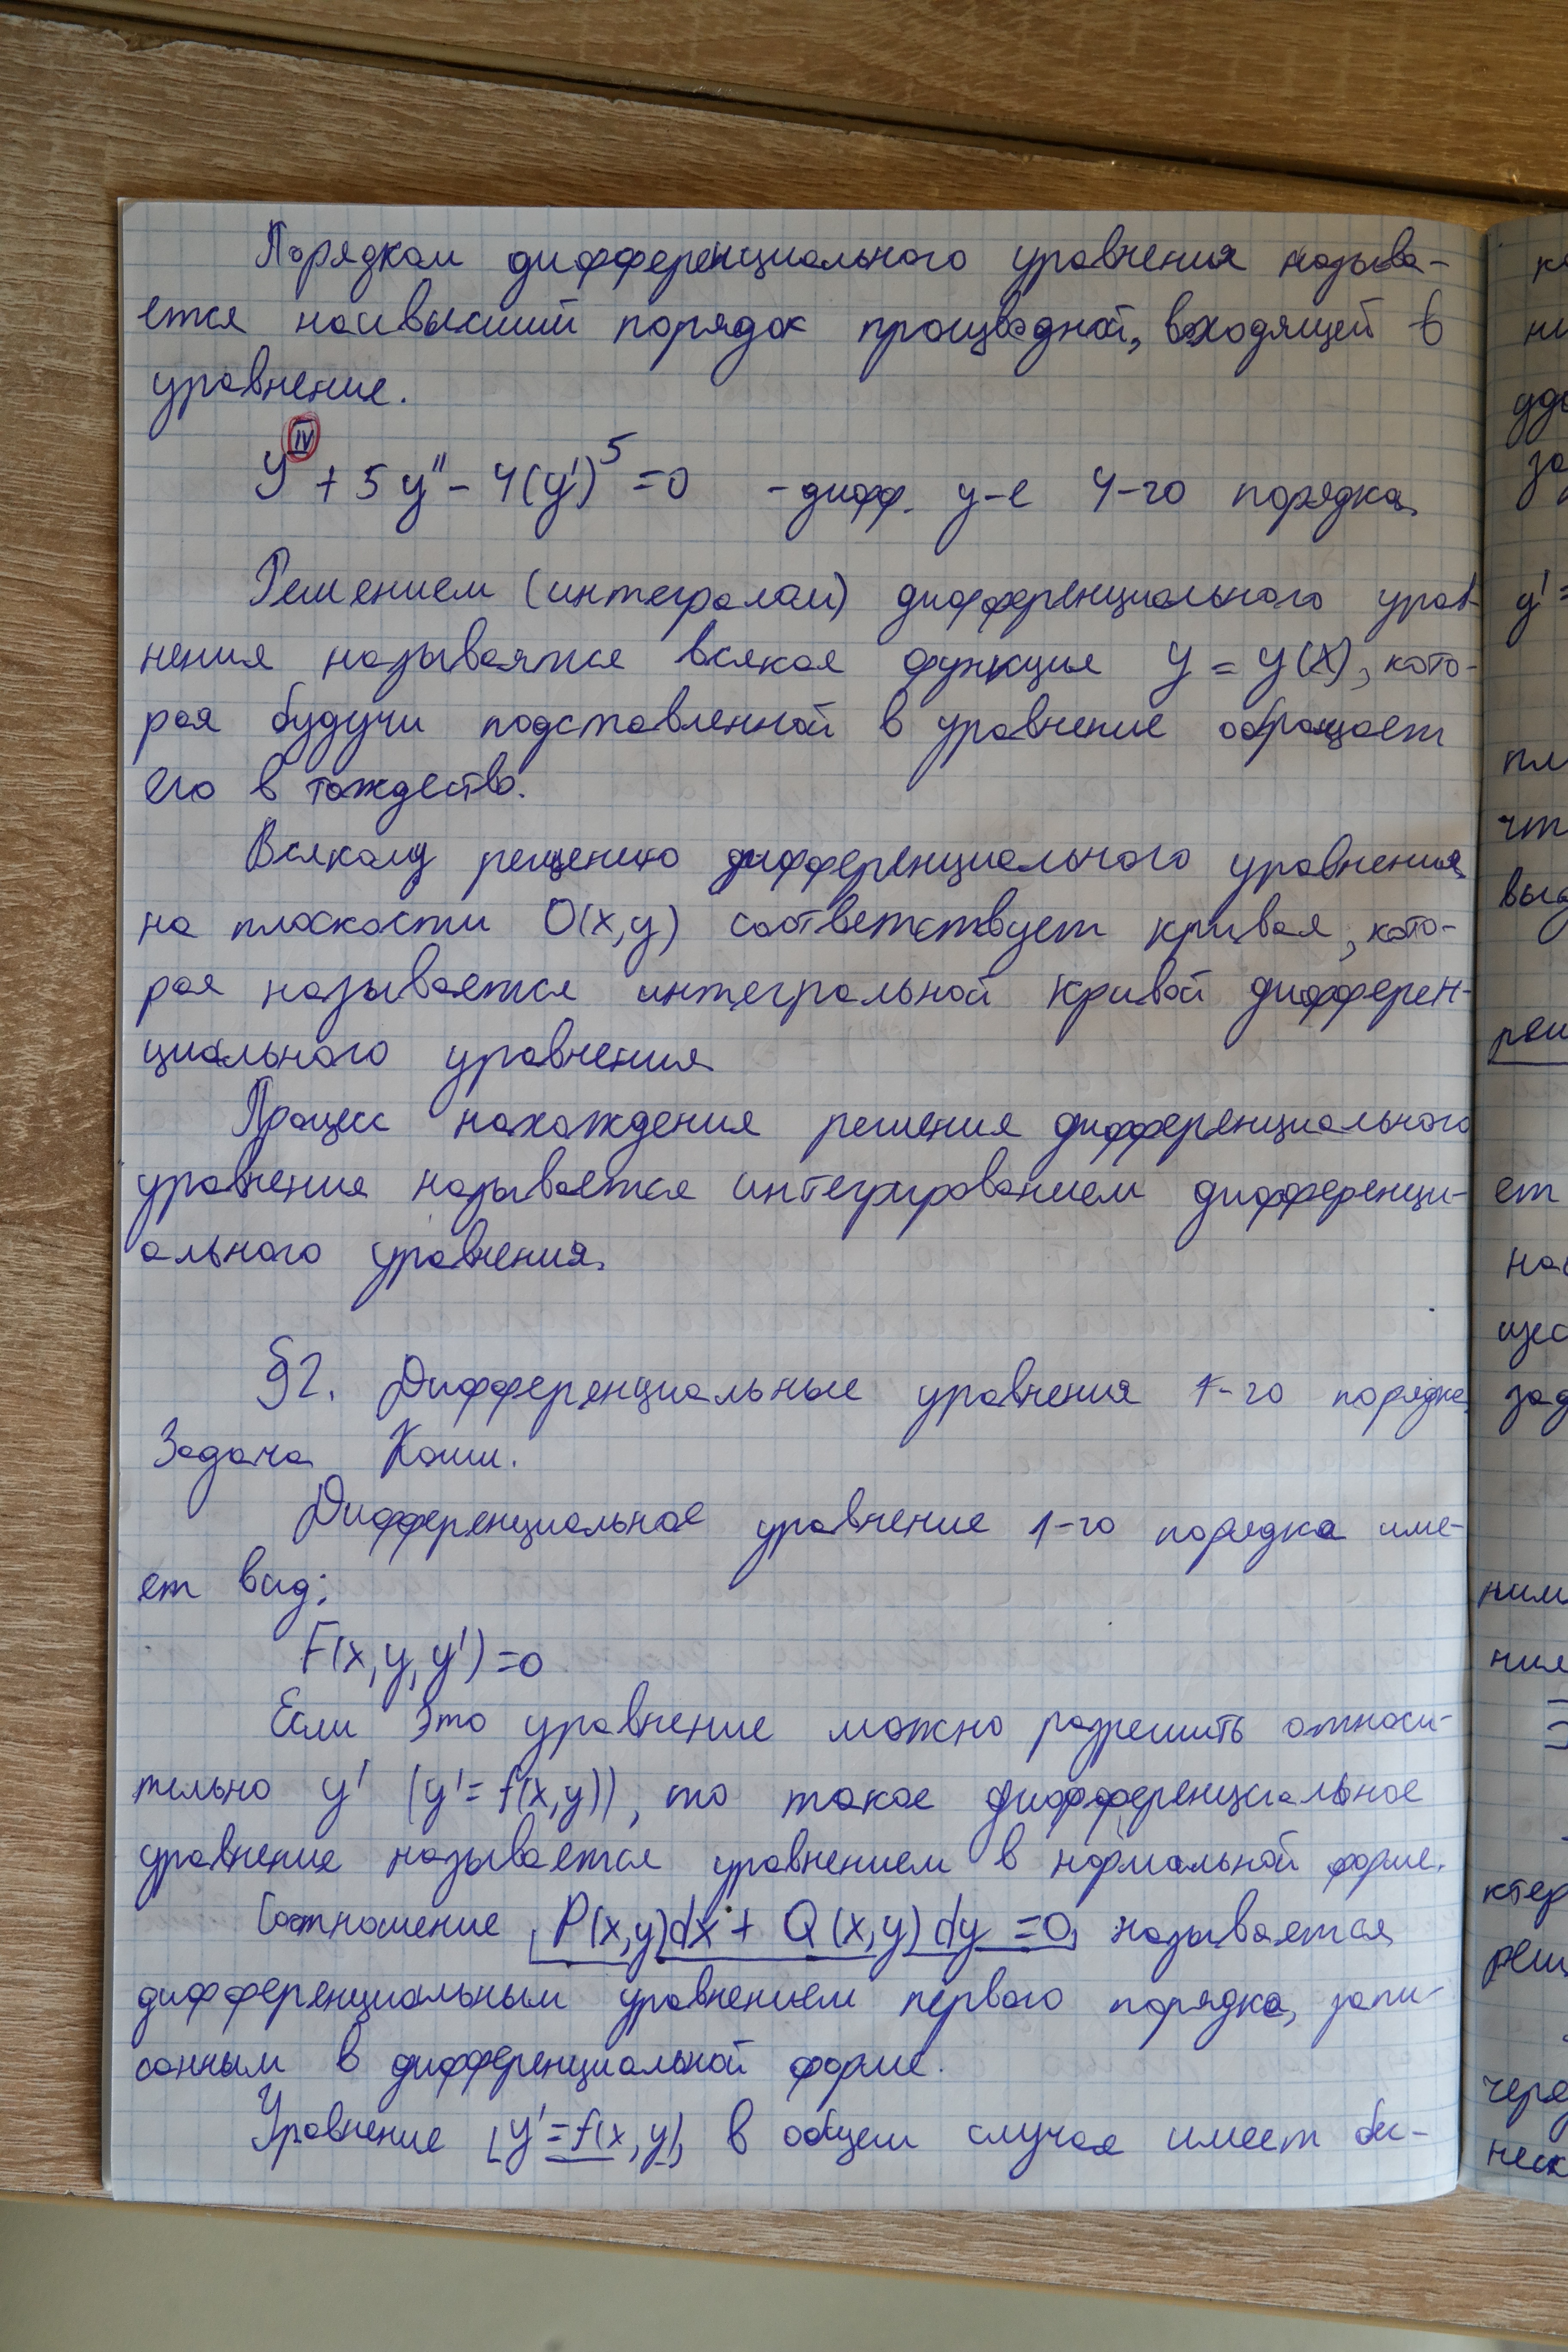 Порядком дифференциального уравнения называ-
ется наивысший порядок производной, входящей в
уравнение.
y^IV + 5y'' - 4(y')^5 = 0 - дифф. у-е 4-го порядка
Решением (интегралом) дифференциального урав-
нения называется всякая функция y = y(x), кото-
рая будучи подставленной в уравнение обращает
его в тождество.
Всякому решению дифференциального уравнения
на плоскости O(x,y) соответствует кривая, кото-
рая называется интегральной кривой дифферен-
циального уравнения
Процесс нахождения решения дифференциального
уравнения называется интегрированием дифференци-
ального уравнения.
§2. Дифференциальные уравнения 1-го порядка
Задача Коши.
Дифференциальное уравнение 1-го порядка име-
ет вид:
F(x,y,y')=0
Если это уравнение можно разрешить относи-
тельно y' (y'=f(x,y)), то такое дифференциальное
уравнение называется уравнением в нормальной форме.
Соотношение P(x,y)dx + Q(x,y)dy = 0 называется
дифференциальным уравнением первого порядка, запи-
санным в дифференциальной форме.
Уравнение y'=f(x,y) в общем случае имеет бес-